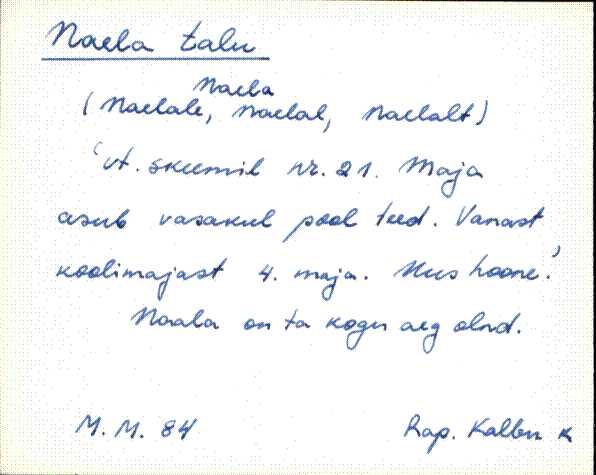 Naela talu
Naela
(Naelale, Naelal, Naelalt)
'vt. skeemil nr. 21. Maja
asub vasakul pool teed. Vanast
koolimajast 4. maja. Uus hoone.'
Naala on ta kogu aeg olnd.
M. M. 84
Rap. Kalbu k